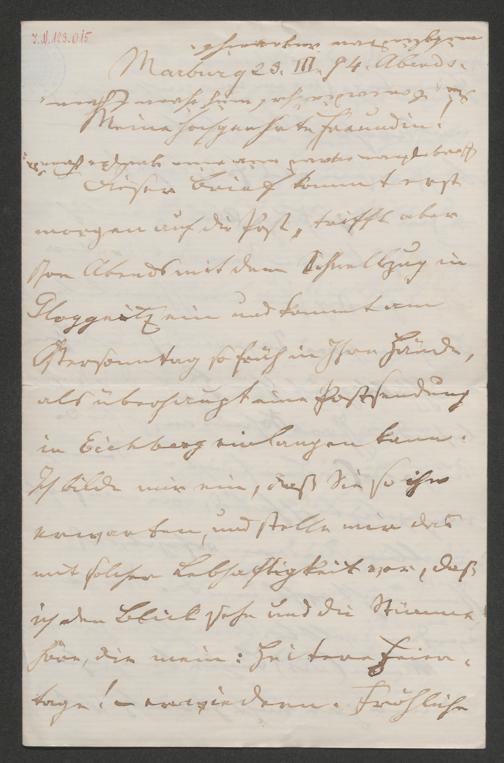 J.N. 123.015
Marburg 23. III. 84. Abends.
Meine hochgeehrte Freundin!
Dieser Brief kommt erst
morgen auf die Post, trifft aber
schon Abends mit dem Schnellzug in
Gloggnitz ein und kommt am
Ostersonntag so früh in Ihre Hände,
als überhaupt eine Postsendung
in Eichberg einlangen kann.
Ich bilde mir ein, daß Sie so ihn
erwarten, und stelle mir das
mit solcher Lebhaftigkeit vor, daß
ich den Blick sehe und die Stimme
höre, die mein: Heitere Feier-
tage! – erwiedern. Fröhliche